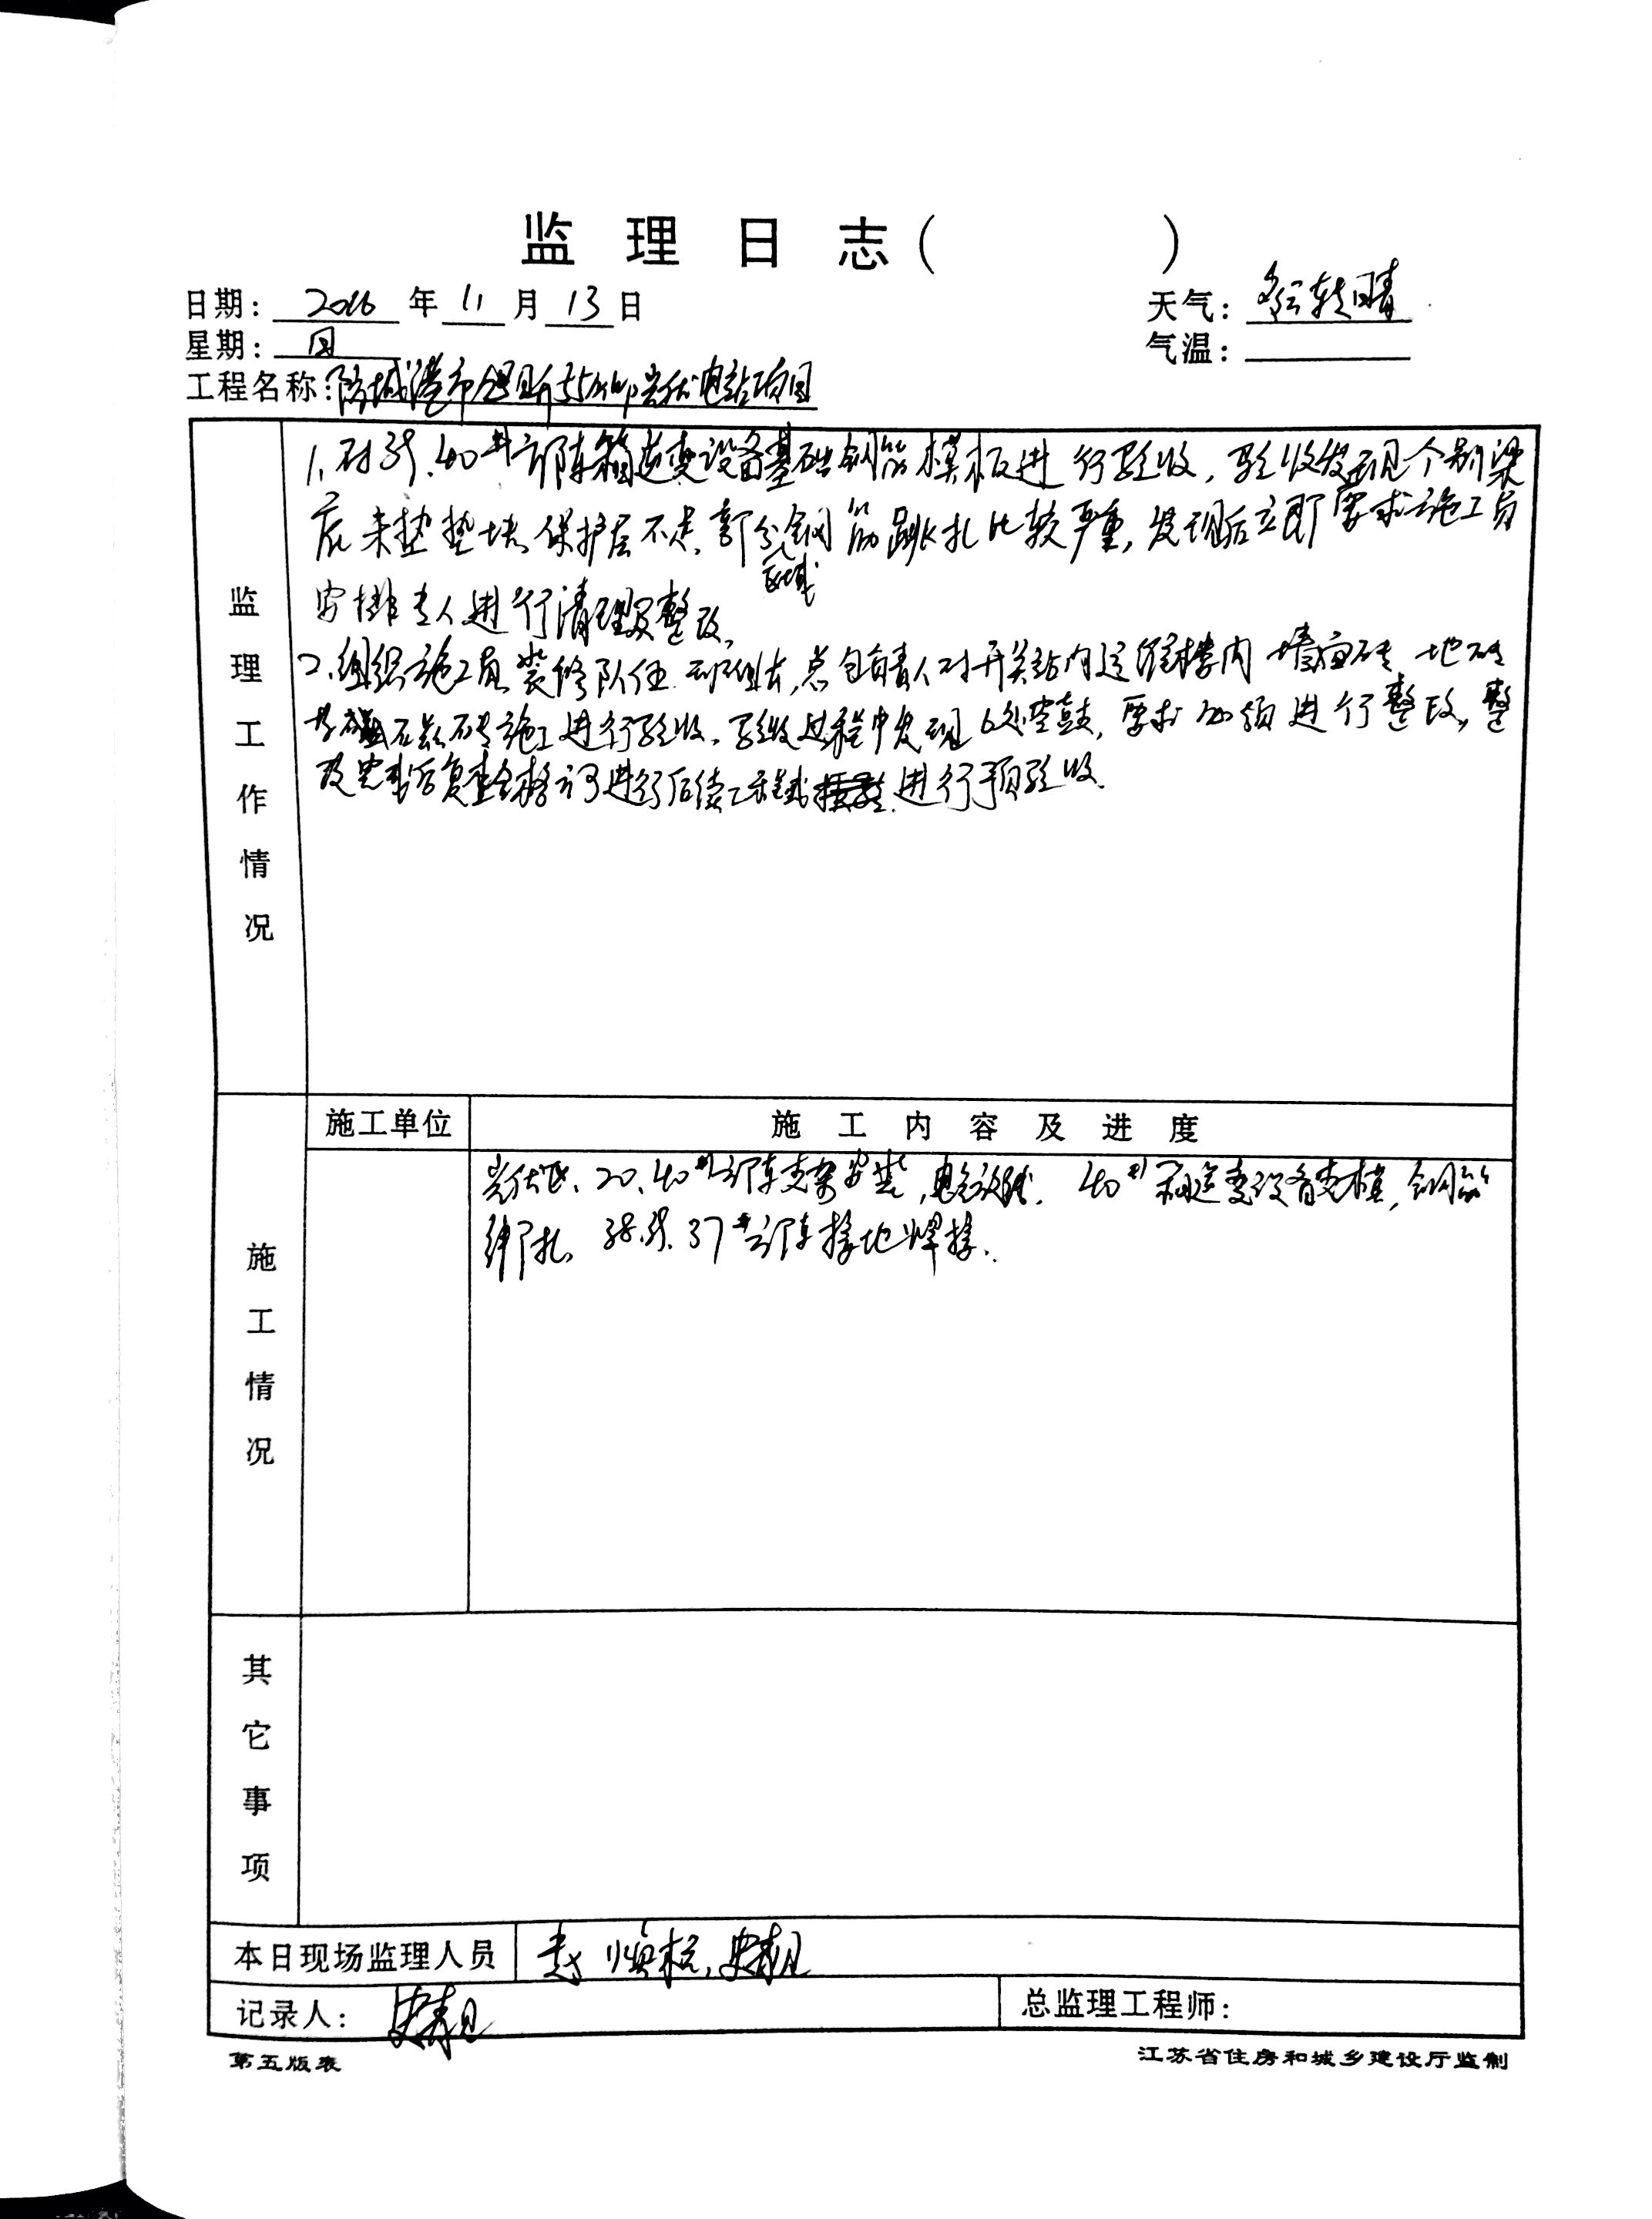 监理日志（　　　）
日期：2016年11月13日
天气：多云转晴
星期：日
气温：
工程名称：防城港市 光伏电站项目
1、对39、40#方阵箱逆变设备基础钢筋模板进行验收，验收发现个别梁
底未垫垫块、保护层不足，部分区域钢筋跳扎比较严重，发现后立即要求施工员
安排专人进行清理及整改。
2、组织施工员、装修队伍、班组长，总包负责人对开关站内运维楼内墙面砖、地砖
施工进行验收，验收过程中发现6处空鼓，要求必须进行整改，整
改完毕后复查合格方可进行后续工 进行预验收。
监理工作情况
施工单位
施工内容及进度
光伏区、20、40#方阵支架安装， 40# 逆变设备支模，钢筋
绑扎、38、39、37#方阵接地焊接。
施工情况
其它事项
本日现场监理人员
记录人：
总监理工程师：
第五版表
江苏省住房和城乡建设厅监制